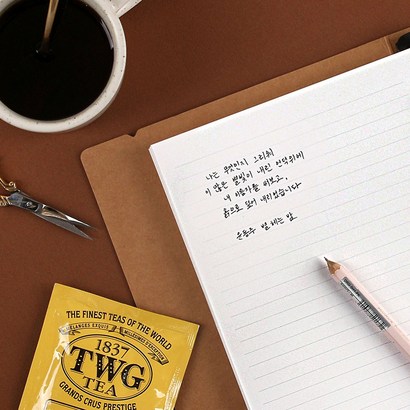 나는 무엇인지 그리워
이 많은 별빛이 내린 언덕위에
내 이름자를 써보고,
흙으로 덮어 버리었습니다
윤동주 별 헤는 밤
THE FINEST TEAS OF THE WORLD
MELANGES EXQUIS
MILLESIMES D'EXCEPTION
1837
TWG
TEA
GRANDS CRUS PRESTIGE